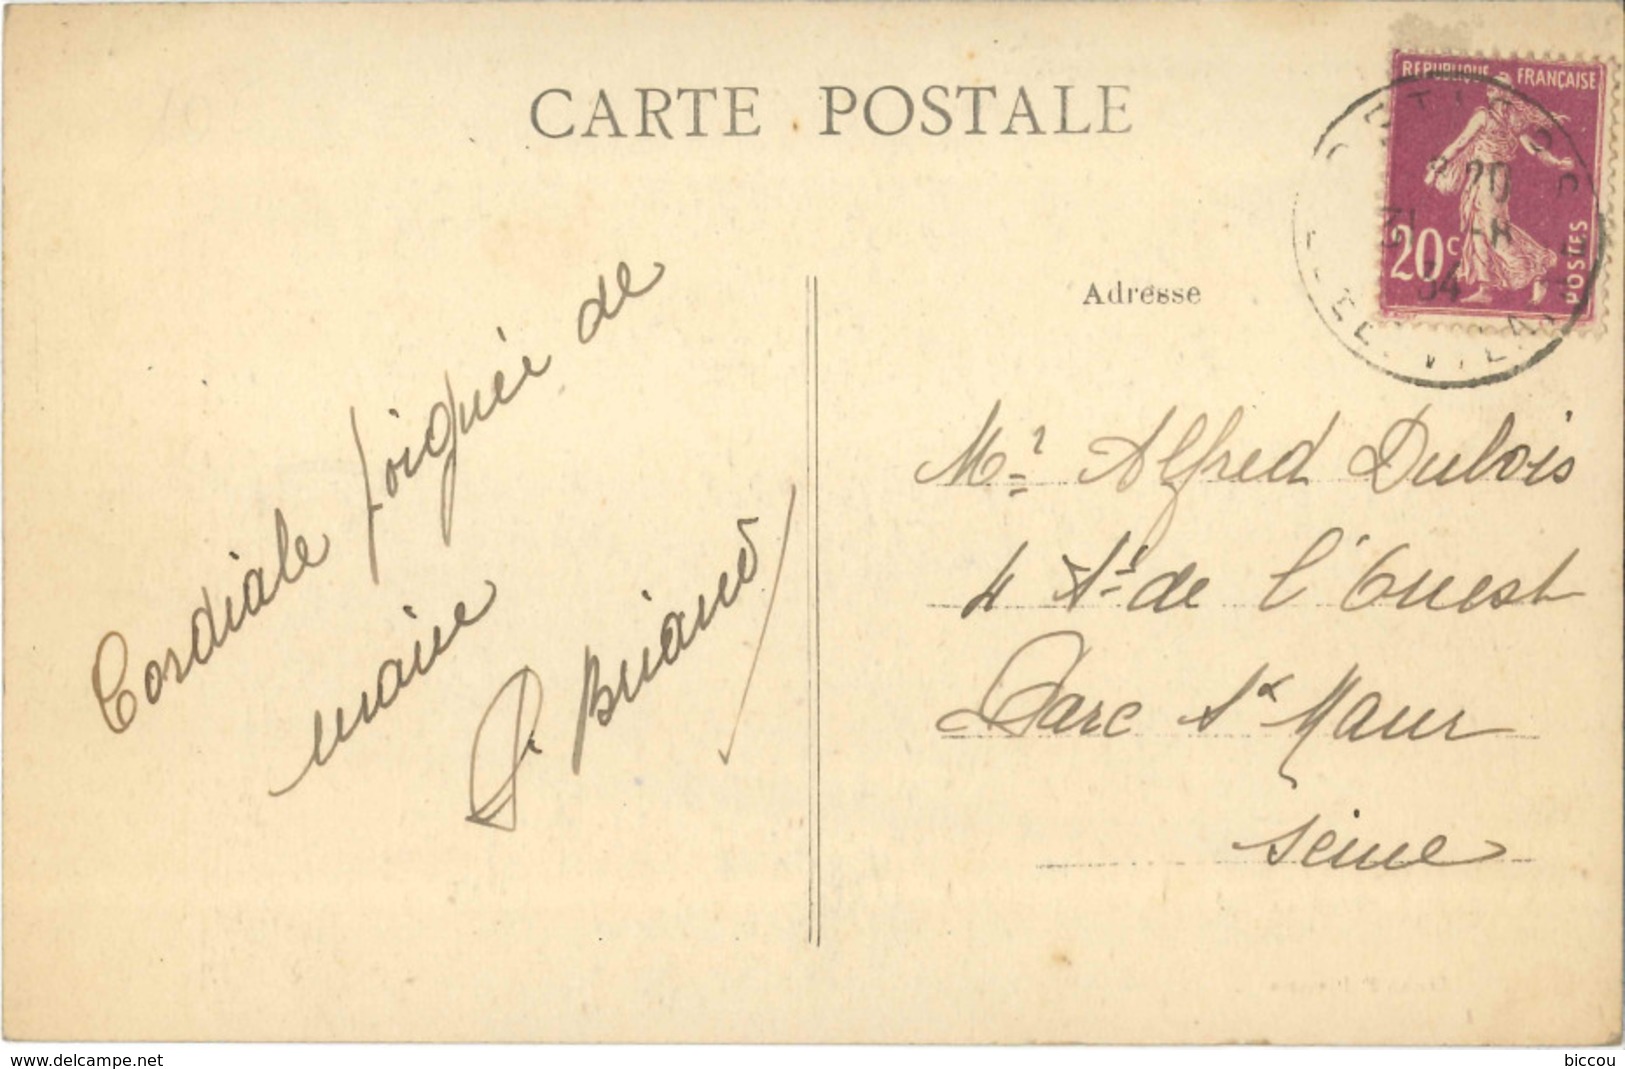 CARTE POSTALE
REPUBLIQUE FRANÇAISE
20c
POSTES
20
31 -8
34
Adresse
Cordiale poignée de
main
Briand
Mr Alfred Dubois
4 de l'Ouest
Parc St Maur
Seine
www.delcampe.net
biccou